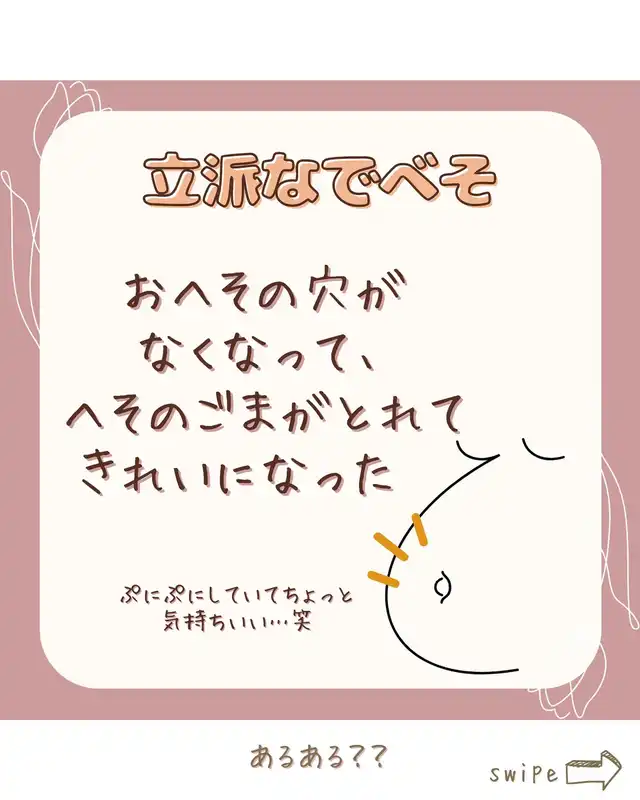 立派なでべそ
おへその穴が
なくなって、
へそのごまがとれて
きれいになった
ぷにぷにしていてちょっと
気持ちいい…笑
あるある??
swipe